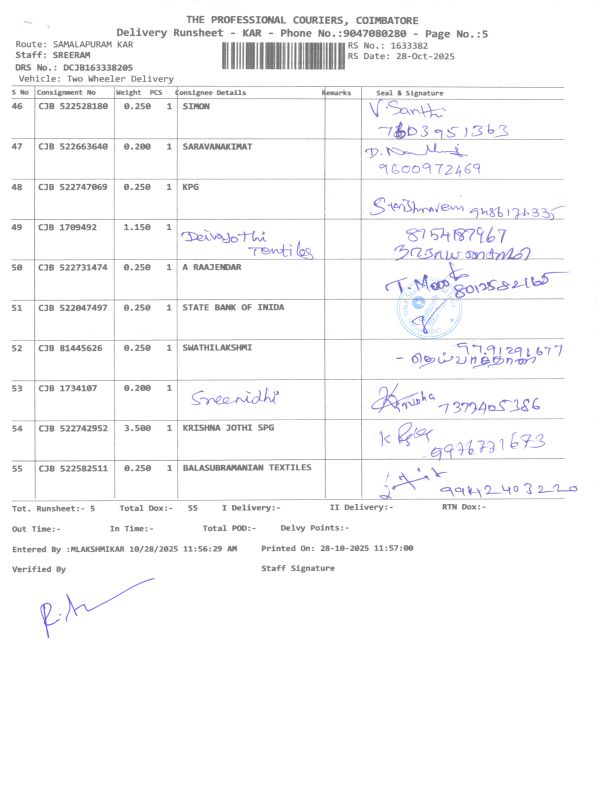 THE PROFESSIONAL COURIERS, COIMBATORE
Delivery Runsheet - KAR - Phone No.:9047080280 - Page No.:5
Route: SAMALAPURAM KAR RS No.: 1633382
Staff: SREERAM RS Date: 28-Oct-2025
DRS No.: DCJB163338205
Vehicle: Two Wheeler Delivery
S No Consignment No Weight PCS Consignee Details Remarks Seal & Signature
46 CJB 522528180 0.250 1 SIMON V. Santhi
7603951363
47 CJB 522663640 0.200 1 SARAVANAKIMAT
9600972469
48 CJB 522747069 0.250 1 KPG
9486174335
49 CJB 1709492 1.150 1 Deivajothi 8754187967
Textiles
50 CJB 522731474 0.250 1 A RAAJENDAR
8012582165
51 CJB 522047497 0.250 1 STATE BANK OF INIDA
52 CJB 81445626 0.250 1 SWATHILAKSHMI 97.91291677
53 CJB 1734107 0.200 1 Sreenidhi
7373405386
54 CJB 522742952 3.500 1 KRISHNA JOTHI SPG
9976771673
55 CJB 522582511 0.250 1 BALASUBRAMANIAN TEXTILES
9942403220
Tot. Runsheet:- 5 Total Dox:- 55 I Delivery:- II Delivery:- RTN Dox:-
Out Time:- In Time:- Total POD:- Delvy Points:-
Entered By :MLAKSHMIKAR 10/28/2025 11:56:29 AM Printed On: 28-10-2025 11:57:00
Verified By Staff Signature